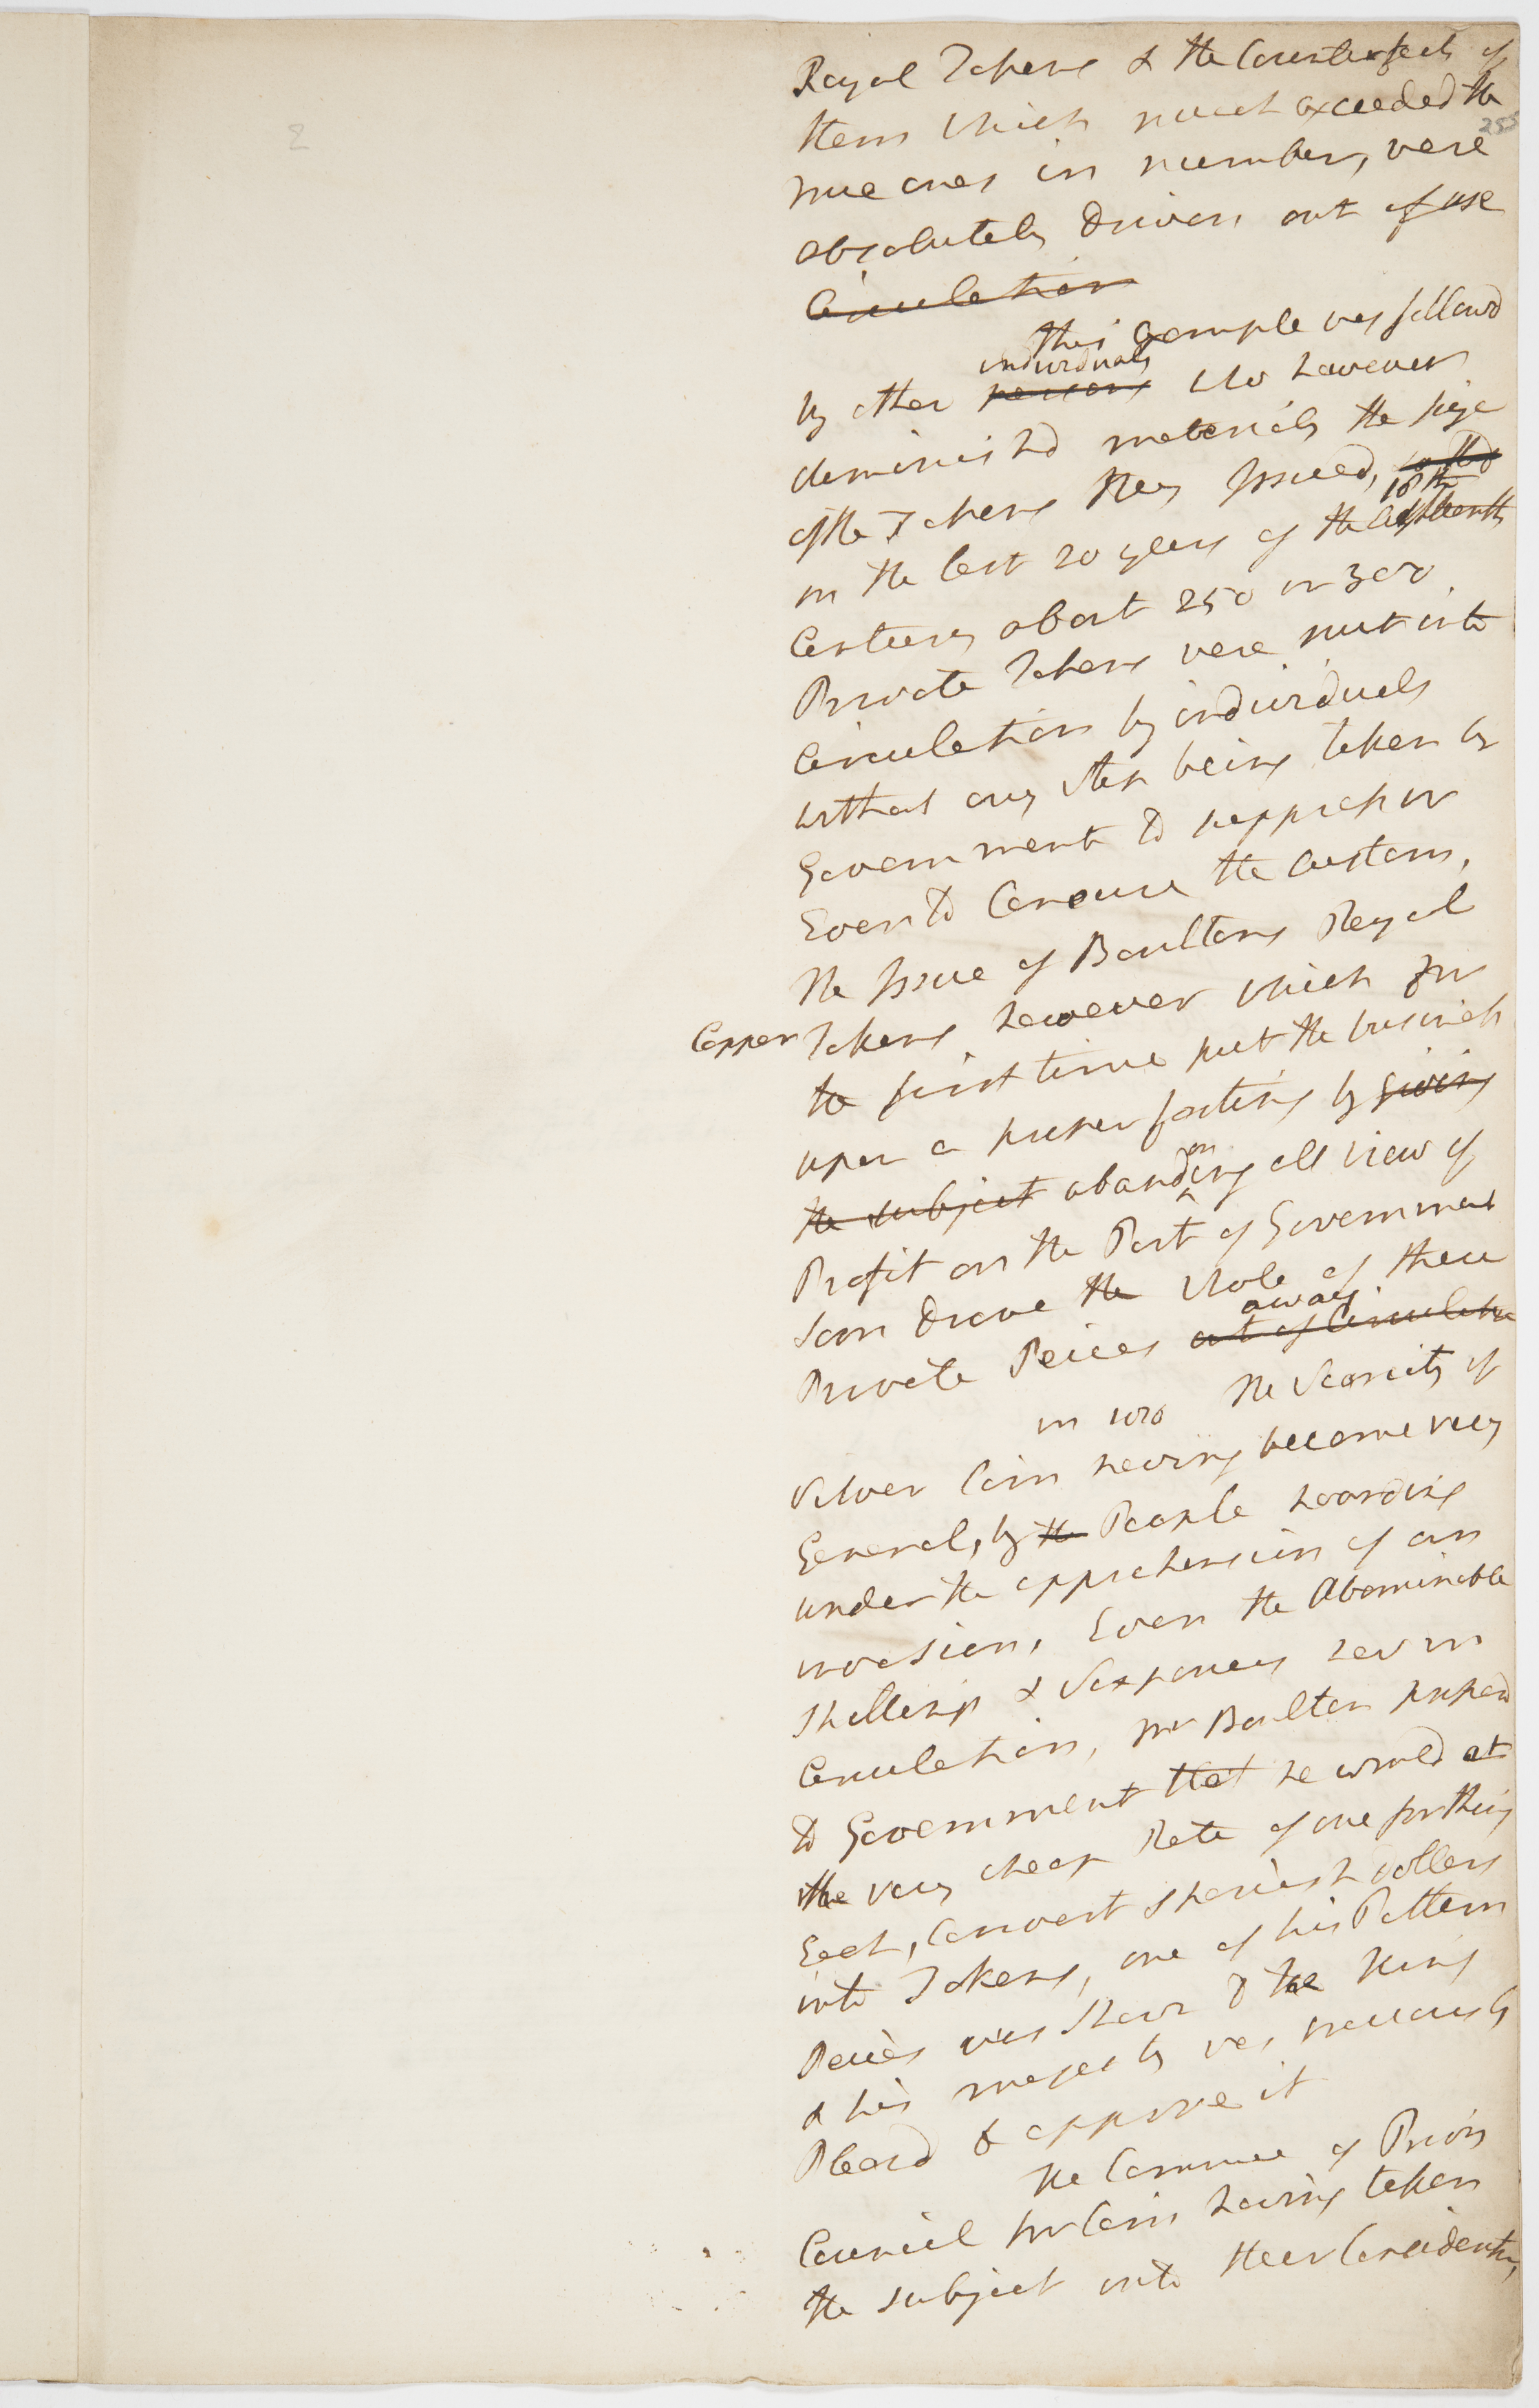 Royal Tokens & the Counterfeits of
them which much exceeded the
255
true ones in number, were
absolutely driven out of use
Circulation
this Example was followd
individuals
by other persons who however
diminishd materialy the size
of the Tokens they Issued,
18th
in the last 20 years of the Eighteenth
Century about 250 or 300
Private Tokens were put into
Circulation by individuals
without any step being taken by
Government to suppress or
Even to Censure the Custom,
the Issue of Boultons Royal
Copper Tokens however which for
the first time put the business
upon a proper footing by giving
on
the subject abanding all view of
Profit on the Part of Government
soon drove the whole of these
away
Private Peices out of Circulation
in The Scarcity of
Silver Coin having become very
General, by the People hoarding
under the apprehension of an
invasion, Even the Abominable
Shillings & Sixpences now in
Circulation, Mr Boulton proposd
to Government that he would at
the very cheap Rate of one farthing
Each, Convert Spanish dollars
into Tokens, one of his Pattern
Peices was shewn to the King
& his majesty was graciously
Pleasd to approve it
The Commee of Privy
Council for Coin having taken
the subject into their Consideration,
2